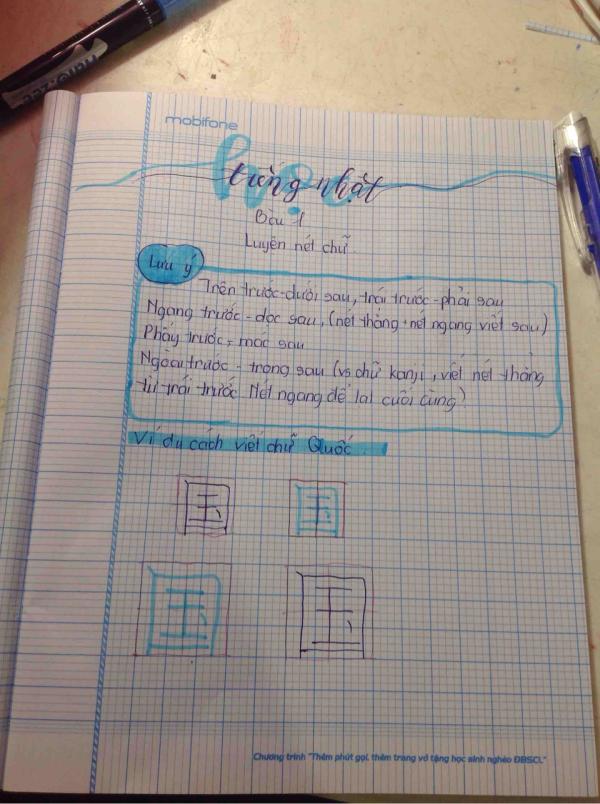 mobifone
học
tiếng nhật
Bài 1
Luyện nét chữ.
Lưu ý
Trên trước - dưới sau, trái trước - phải sau
Ngang trước - dọc sau, (nét thẳng + nét ngang viết sau)
Phẩy trước - mác sau
Ngoài trước - trong sau (vs chữ kanji, viết nét thẳng
từ trái trước. Nét ngang để lại cuối cùng)
Ví dụ cách viết chữ Quốc.
国 国
国 国
Chương trình "Thêm phút gọi, thêm trang vở tặng học sinh nghèo ĐBSCL"